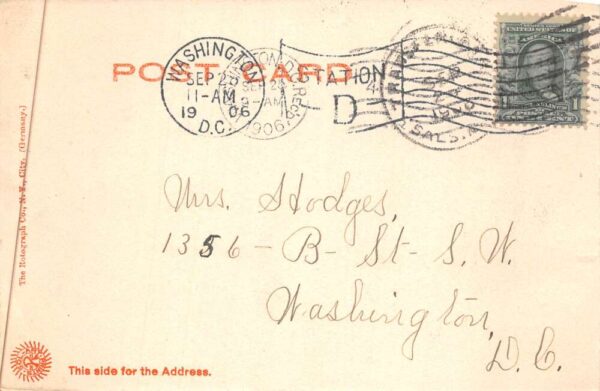 POST CARD
WASHINGTON
SEP 28
11-AM
1906
D.C.
STATION
D
1906
UNITED STATES OF AMERICA
1
Mrs. Hodges,
1356 - B - St - S. W.
Washington,
D. C.
The Rotograph Co., N. Y. City. (Germany.)
This side for the Address.